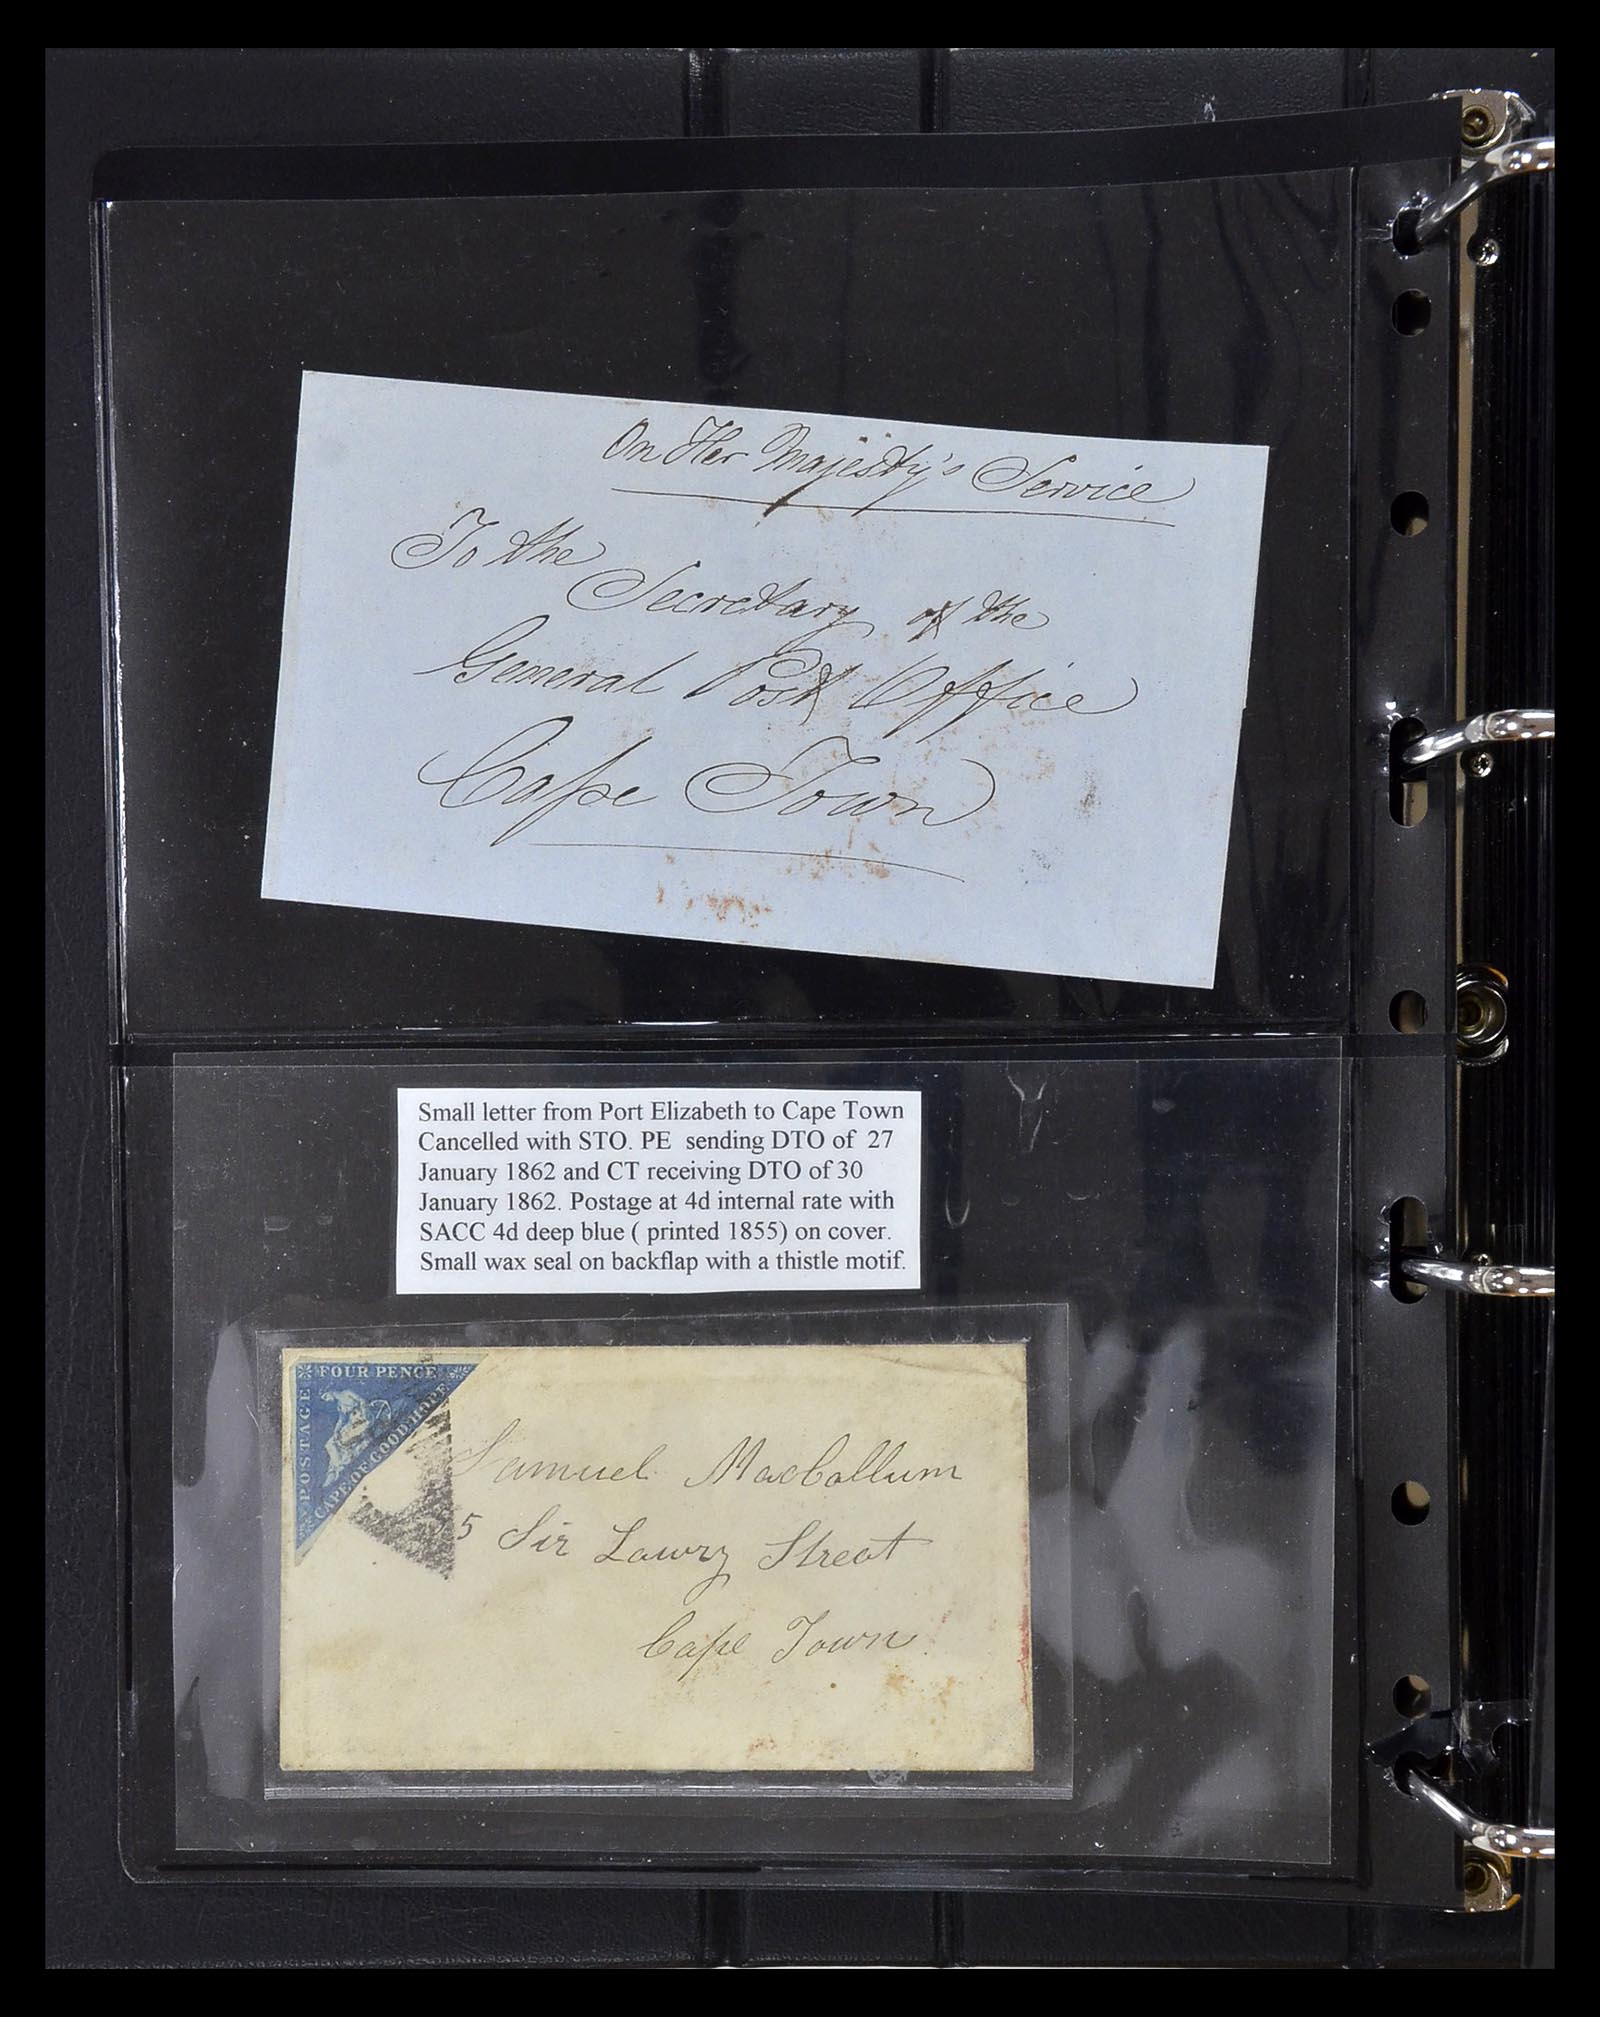 On Her Majesty's Service
To the
Secretary of the
General Post Office
Cape Town
Small letter from Port Elizabeth to Cape Town
Cancelled with STO. PE sending DTO of 27
January 1862 and CT receiving DTO of 30
January 1862. Postage at 4d internal rate with
SACC 4d deep blue ( printed 1855) on cover.
Small wax seal on backflap with a thistle motif.
FOUR PENCE
POSTAGE
CAPE OF GOOD HOPE
Samuel MacCallum
5 Sir Lowry Street
Cape Town